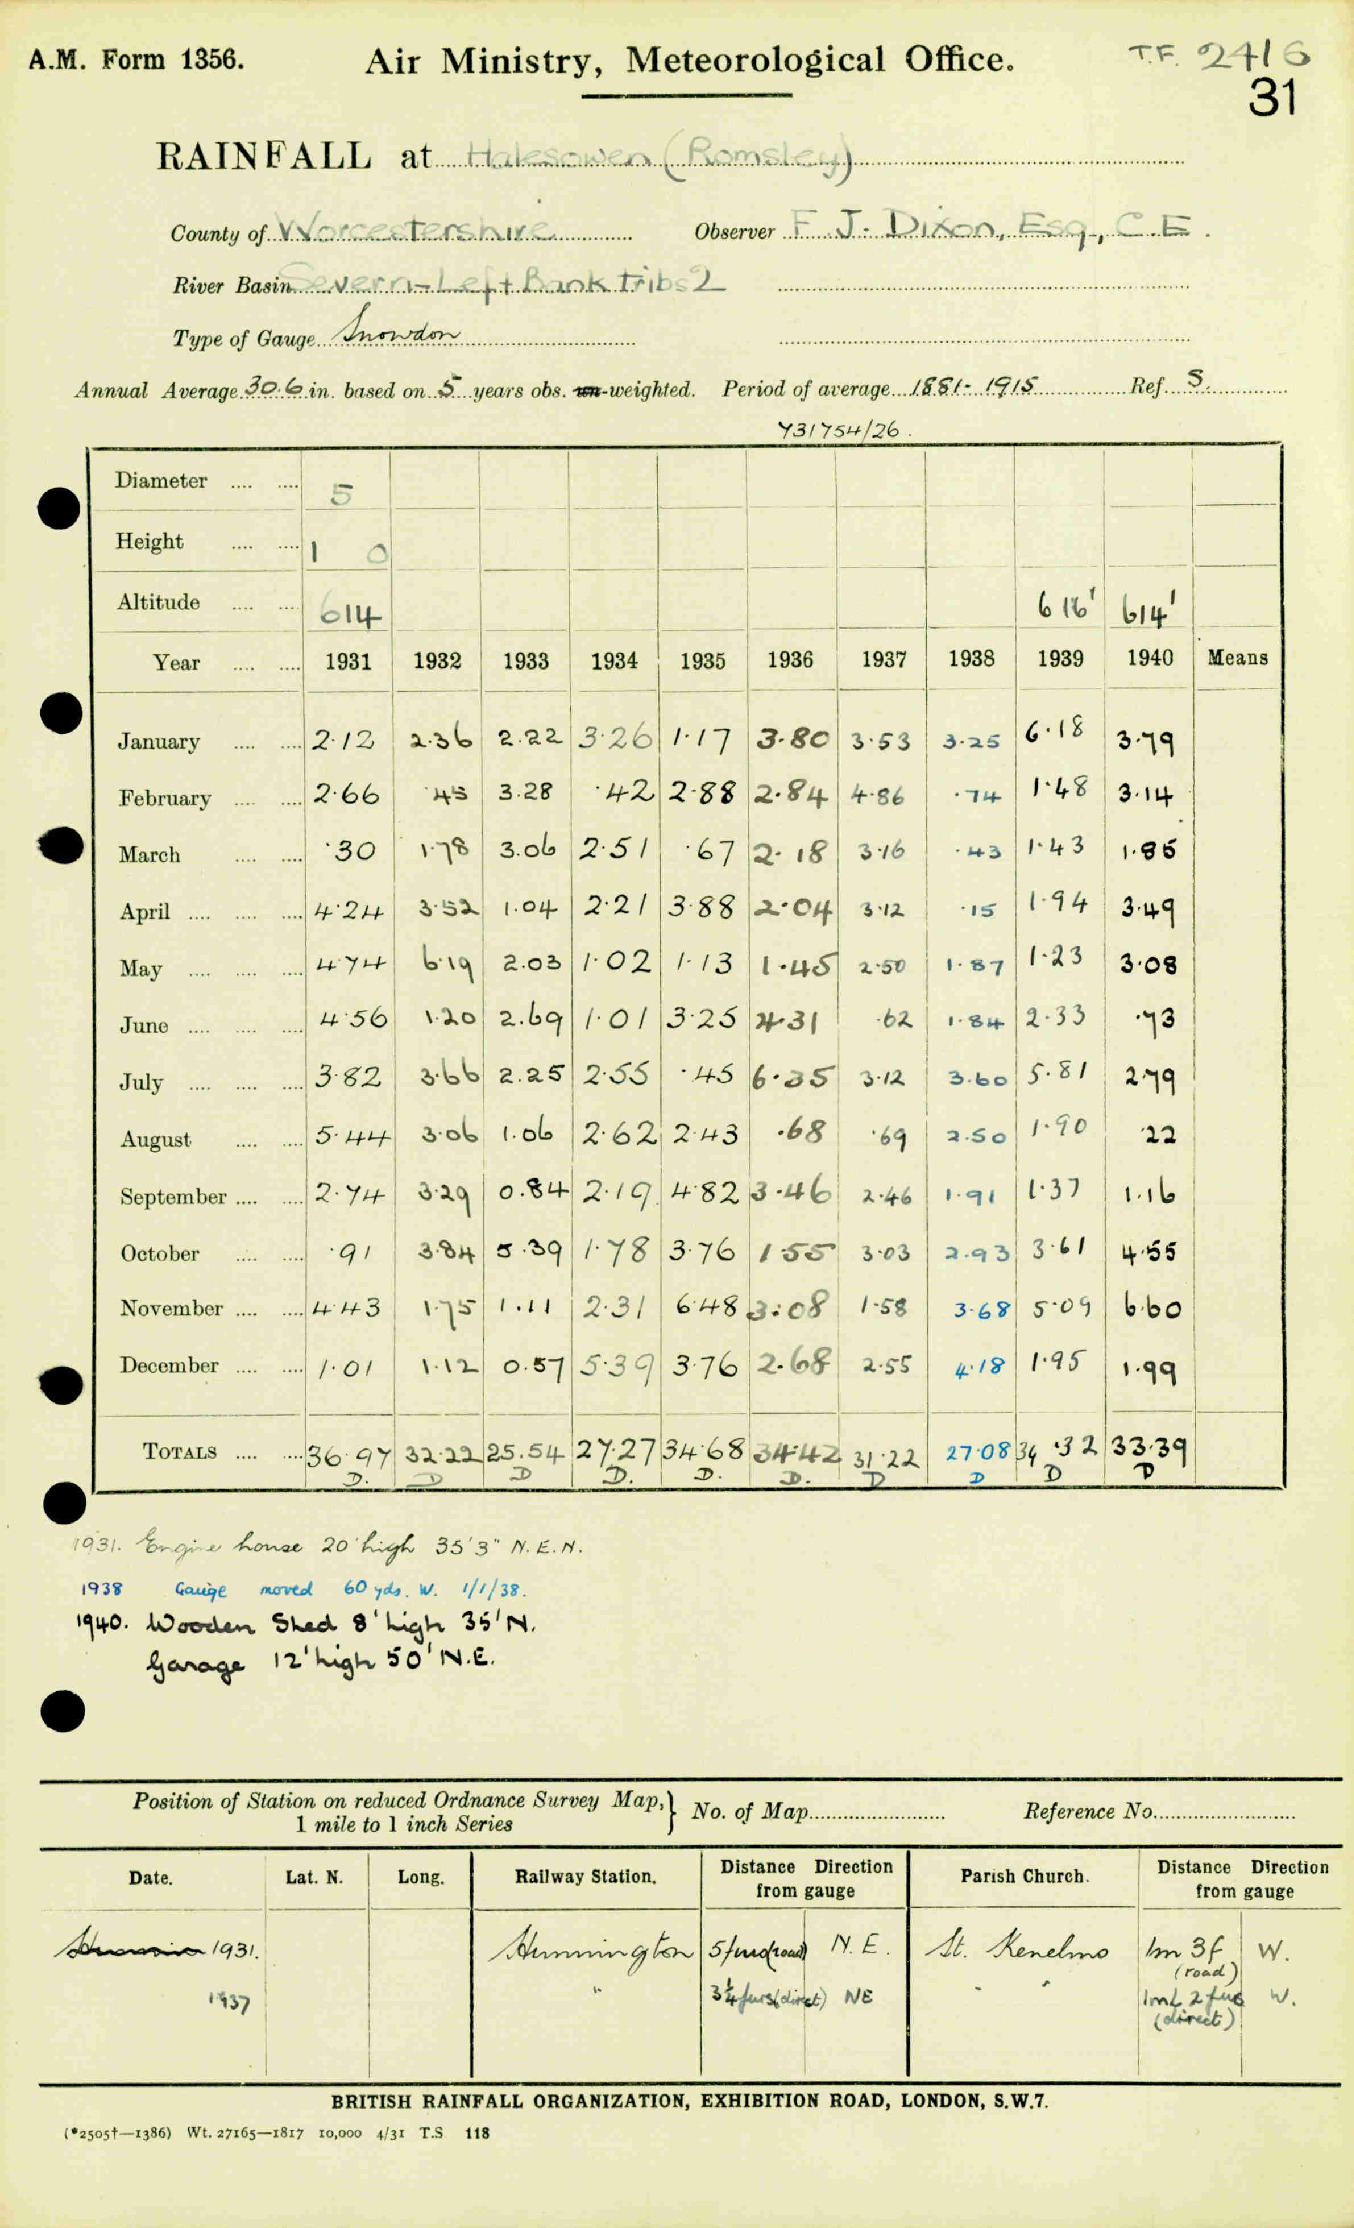 A.M. Form 1356. Air Ministry, Meteorological Office. T.F. 2416
31
RAINFALL at Halesowen (Romsley)
County of Worcestershire Observer F. J. Dixon, Esq., C.E.
River Basin Severn-Left Bank tribs 2
Type of Gauge Snowdon
Annual Average 30.6 in. based on 5 years obs. un-weighted. Period of average 1881-1915 Ref. S.
731754/26.
Diameter .... .... 5
Height .... .... 1 0
Altitude .... .... 614 616' 614'
Year .... .... 1931 1932 1933 1934 1935 1936 1937 1938 1939 1940 Means
January .... .... 2.12 2.36 2.22 3.26 1.17 3.80 3.53 3.25 6.18 3.79
February .... .... 2.66 .45 3.28 .42 2.88 2.84 4.86 .74 1.48 3.14
March .... .... .30 1.78 3.06 2.51 .67 2.18 3.16 .43 1.43 1.85
April .... .... .... 4.24 3.52 1.04 2.21 3.88 2.04 3.12 .15 1.94 3.49
May .... .... .... 4.74 6.19 2.03 1.02 1.13 1.45 2.50 1.87 1.23 3.08
June .... .... .... 4.56 1.20 2.69 1.01 3.25 4.31 .62 1.84 2.33 .73
July .... .... .... 3.82 3.66 2.25 2.55 .45 6.35 3.12 3.60 5.81 2.79
August .... .... 5.44 3.06 1.06 2.62 2.43 .68 .69 2.50 1.90 .22
September .... .... 2.74 3.29 0.84 2.19 4.82 3.46 2.46 1.91 1.37 1.16
October .... .... .91 3.84 5.39 1.78 3.76 1.55 3.03 2.93 3.61 4.55
November .... .... 4.43 1.75 1.11 2.31 6.48 3.08 1.58 3.68 5.09 6.60
December .... .... 1.01 1.12 0.57 5.39 3.76 2.68 2.55 4.18 1.95 1.99
TOTALS .... .... 36.97 32.22 25.54 27.27 34.68 34.42 31.22 27.08 34.32 33.39
D. D D D. D. D. D D D D
1931. Engine house 20' high 35'3" N.E.N.
1938 Gauge moved 60 yds. W. 1/1/38.
1940. Wooden Shed 8' high 35' N.
Garage 12' high 50' N.E.
Position of Station on reduced Ordnance Survey Map, } No. of Map Reference No.
1 mile to 1 inch Series
Date. Lat. N. Long. Railway Station. Distance Direction from gauge Parish Church. Distance Direction from gauge
1931. Hunnington 5 furs (road) N.E. St. Kenelms 1m 3f (road) W.
1937 " 3¼ furs (direct) NE " " 1ml 2 furs (direct) W.
BRITISH RAINFALL ORGANIZATION, EXHIBITION ROAD, LONDON, S.W.7.
(*2505†—1386) Wt. 27165—1817 10,000 4/31 T.S 118